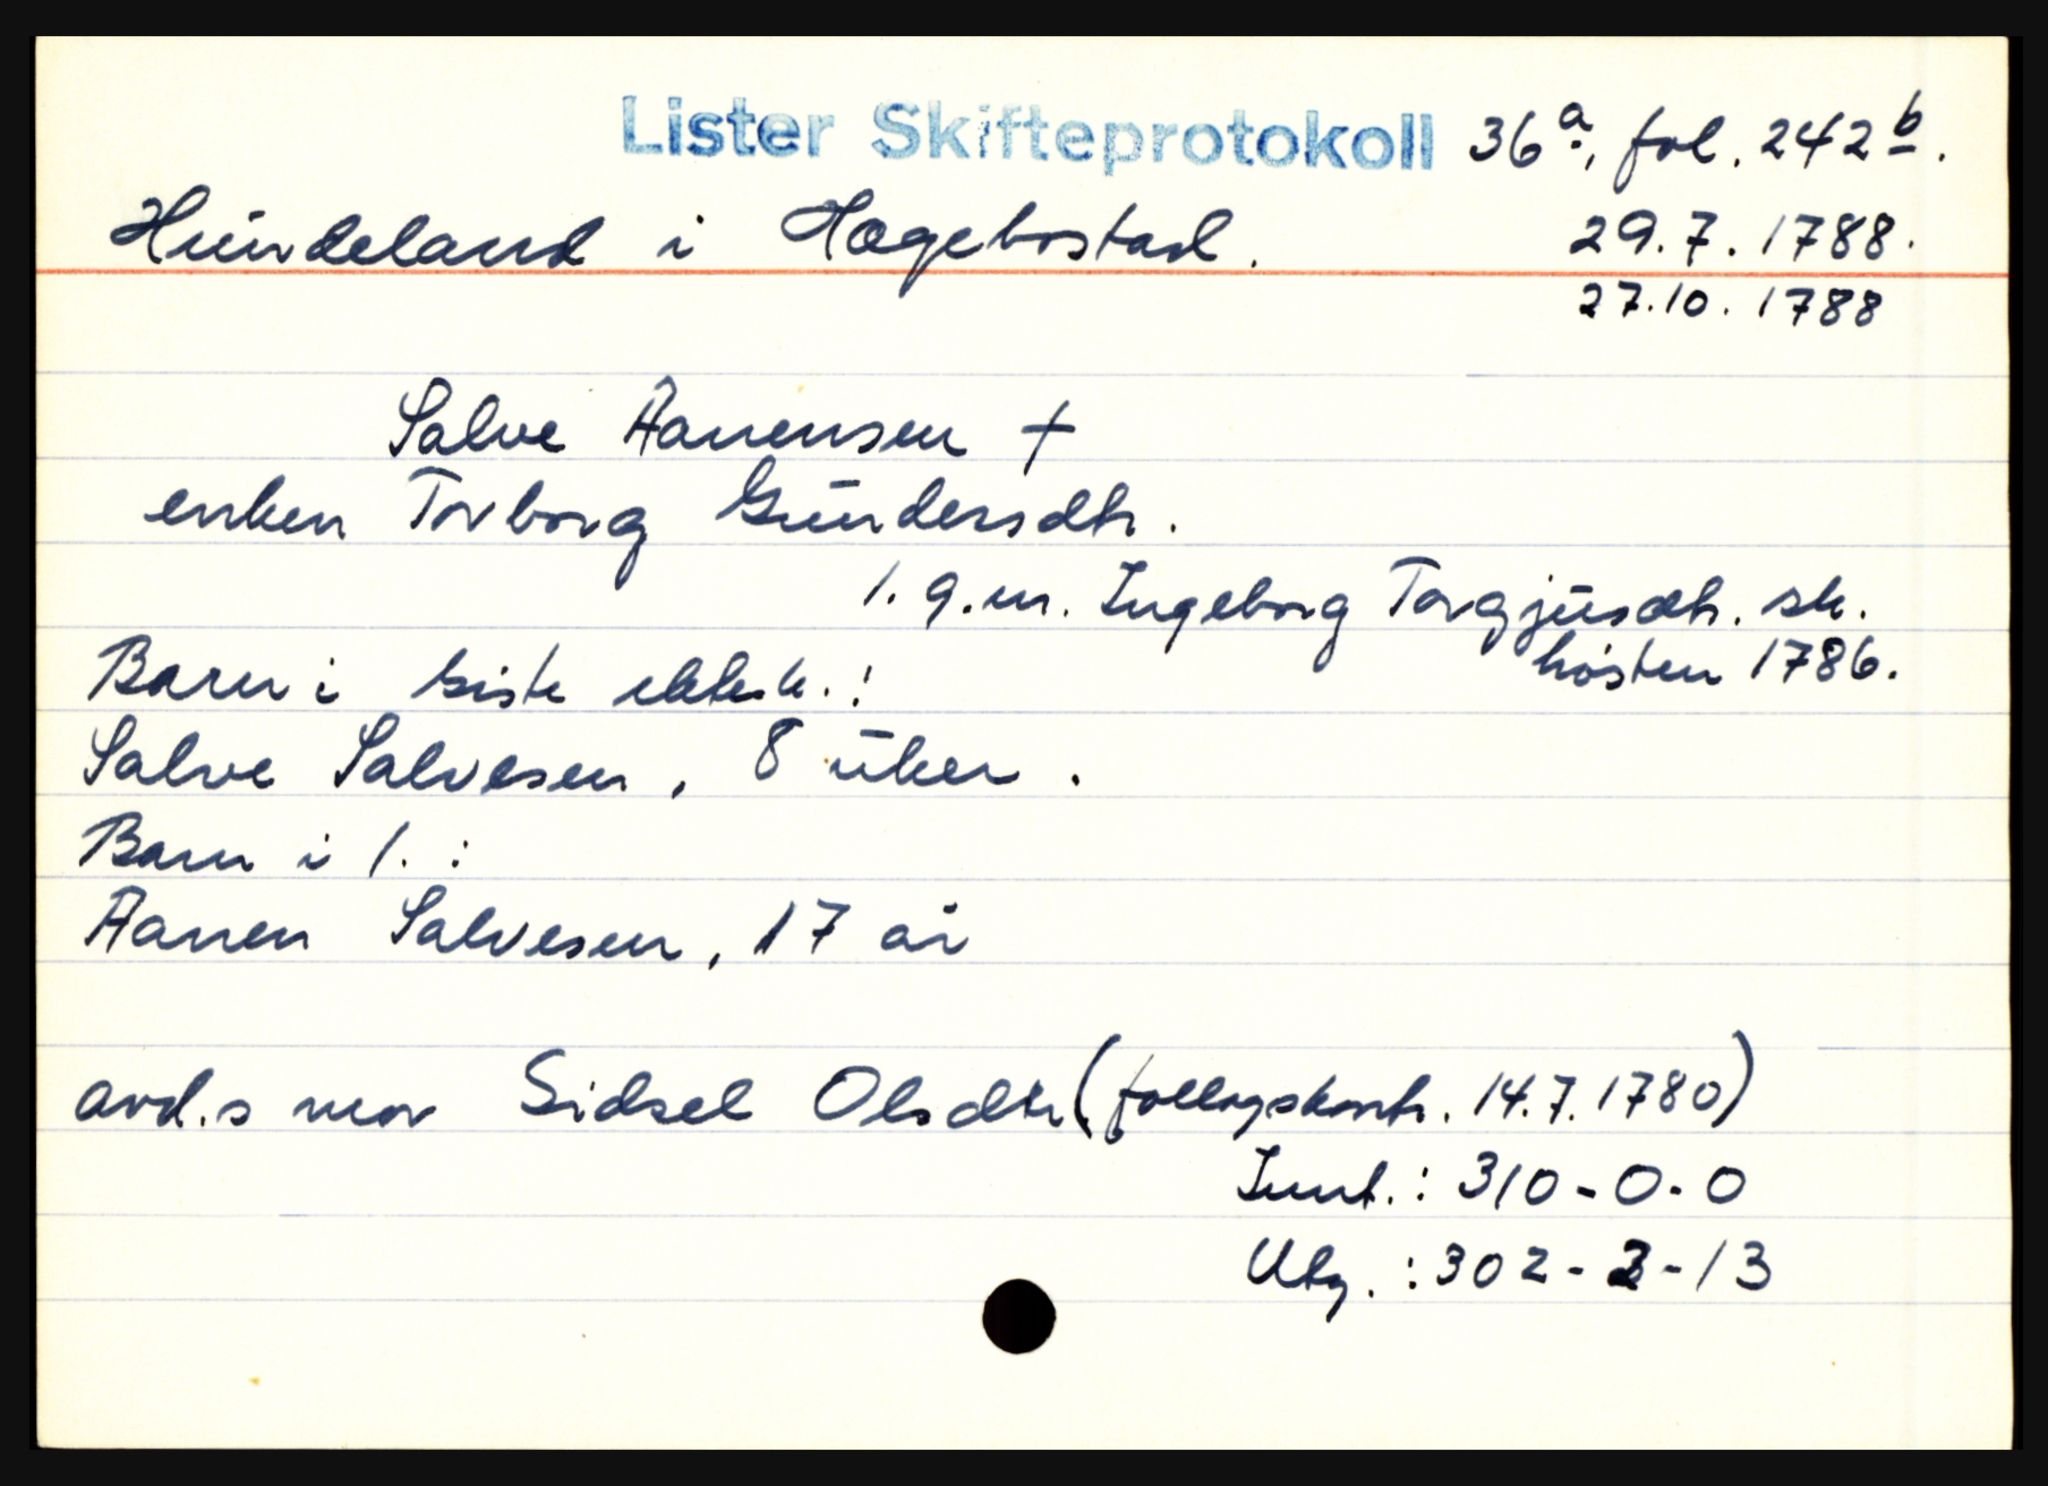 Lister Skifteprotokoll 36a., fol. 242b.
Hundeland i Hægebostad. 29.7.1788.
27.10.1788
Salve Aanensen †
enken Torborg Gundersdtr.
1. g.m. Ingeborg Torgjusdtr. sk.
høsten 1786.
Barn i siste ektesk.:
Salve Salvesen, 8 uker.
Barn i 1.:
Aanen Salvesen, 17 år
avd.s mor Sidsel Olsdtr (follogskontr. 14.7.1780)
Innt.: 310-0-0
Utg.: 302-3-13